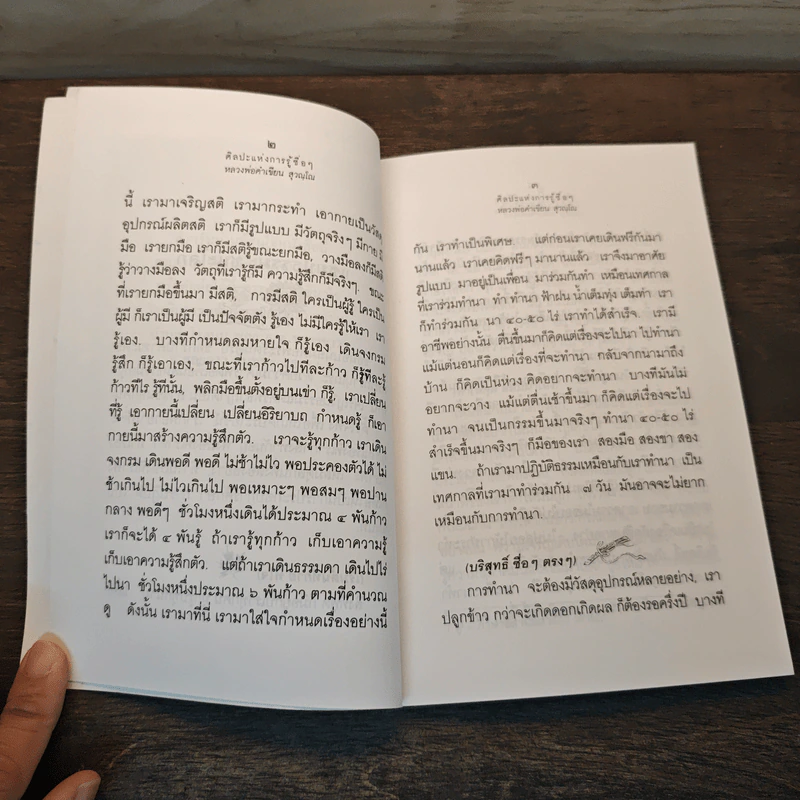 ๒
ศิลปะแห่งการรู้ซื่อๆ
หลวงพ่อคำเขียน สุวณฺโณ
นี้ เรามาเจริญสติ เรามากระทำ เอากายเป็นวัสดุ
อุปกรณ์ผลิตสติ เราก็มีรูปแบบ มีวัตถุจริงๆ มีกาย มี
มือ เรายกมือ เราก็มีสติรู้ขณะยกมือ, วางมือลงก็มีสติ
รู้ว่าวางมือลง วัตถุที่เรารู้ก็มี ความรู้สึกก็มีจริงๆ ขณะ
ที่เรายกมือขึ้นมา มีสติ, การมีสติ ใครเป็นผู้รู้ ใครเป็น
ผู้มี ก็เราเป็นผู้มี เป็นปัจจัตตัง รู้เอง ไม่มีใครรู้ให้เรา เรา
รู้เอง. บางทีกำหนดลมหายใจ ก็รู้เอง เดินจงกรม
รู้สึก ก็รู้เอาเอง, ขณะที่เราก้าวไปทีละก้าว ก็รู้ทีละรู้
ก้าวทีไร รู้ทีนั้น, พลิกมือขึ้นตั้งอยู่บนเข่า ก็รู้, เราเปลี่ยน
ที่รู้ เอากายนี้เปลี่ยน เปลี่ยนอิริยาบถ กำหนดรู้ ก็เอา
กายนี้มาสร้างความรู้สึกตัว. เราจะรู้ทุกก้าว เราเดิน
จงกรม เดินพอดี พอดี ไม่ช้าไม่ไว พอประคองตัวได้ ไม่
ช้าเกินไป ไม่ไวเกินไป พอเหมาะๆ พอสมๆ พอปาน
กลาง พอดีๆ ชั่วโมงหนึ่งเดินได้ประมาณ ๔ พันก้าว
เราก็จะได้ ๔ พันรู้ ถ้าเรารู้ทุกก้าว เก็บเอาความรู้
เก็บเอาความรู้สึกตัว. แต่ถ้าเราเดินธรรมดา เดินไปไร่
ไปนา ชั่วโมงหนึ่งประมาณ ๖ พันก้าว ตามที่คำนวณ
ดู ดังนั้น เรามาที่นี่ เรามาใส่ใจกำหนดเรื่องอย่างนี้
๓
ศิลปะแห่งการรู้ซื่อๆ
หลวงพ่อคำเขียน สุวณฺโณ
กัน เราทำเป็นพิเศษ. แต่ก่อนเราเคยเดินฟรีกันมา
นานแล้ว เราเคยคิดฟรีๆ มานานแล้ว เราจึงมาอาศัย
รูปแบบ มาอยู่เป็นเพื่อน มาร่วมกันทำ เหมือนเทศกาล
ที่เราร่วมทำนา ทำ ทำนา ฟ้าฝน น้ำเต็มทุ่ง เต็มท่า เรา
ก็ทำร่วมกัน นา ๔๐-๕๐ ไร่ เราทำได้สำเร็จ. เรามี
อาชีพอย่างนั้น ตื่นขึ้นมาก็คิดแต่เรื่องจะไปนา ไปทำนา
แม้แต่นอนก็คิดแต่เรื่องที่จะทำนา กลับจากนามาถึง
บ้าน ก็คิดเป็นห่วง คิดอยากจะทำนา บางทีมันไม่
อยากจะวาง แม้แต่ตื่นเช้าขึ้นมา ก็คิดแต่เรื่องจะไป
ทำนา จนเป็นกรรมขึ้นมาจริงๆ ทำนา ๔๐-๕๐ ไร่
สำเร็จขึ้นมาจริงๆ ก็มือของเรา สองมือ สองขา สอง
แขน. ถ้าเรามาปฏิบัติธรรมเหมือนกับเราทำนา เป็น
เทศกาลที่เรามาทำร่วมกัน ๗ วัน มันอาจจะไม่ยาก
เหมือนกับการทำนา.
(บริสุทธิ์ ซื่อๆ ตรงๆ)
การทำนา จะต้องมีวัสดุอุปกรณ์หลายอย่าง, เรา
ปลูกข้าว กว่าจะเกิดดอกเกิดผล ก็ต้องรอครึ่งปี บางที